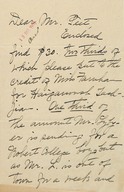 Dear Mr. Peet
Enclosed
find $30. Two thirds of
which please put to the
credit of Miss
for
. One third of
the amount Mr.
is sending for a
Robert College
as Mr. L. is out of
town for a week and